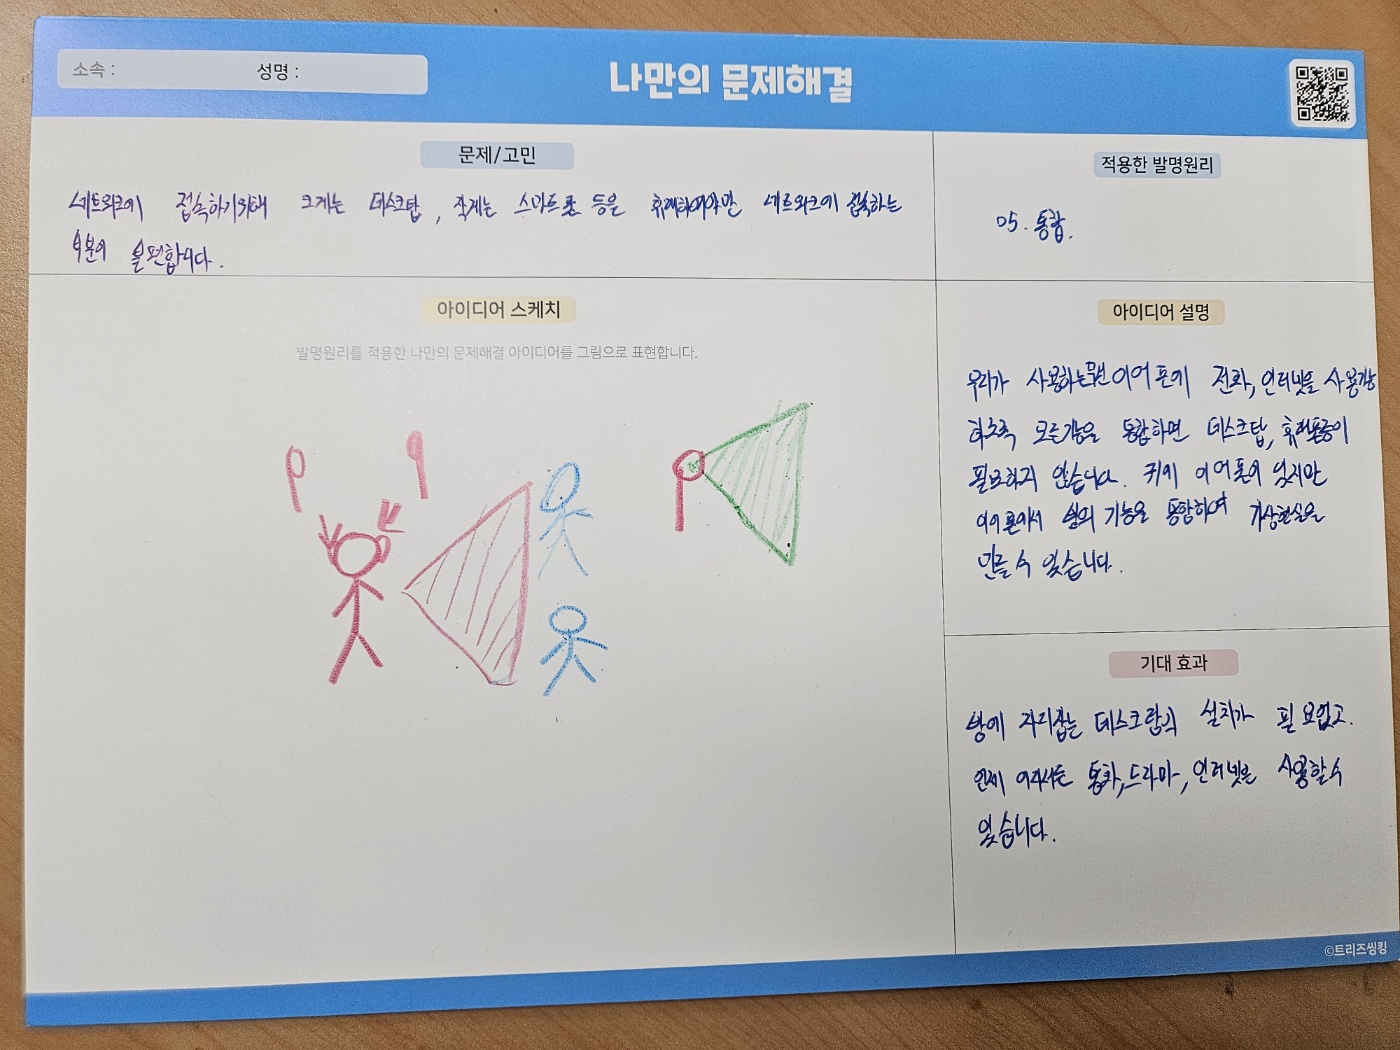 소속 :
성명 :
나만의 문제해결
문제/고민
네트워크에 접속하기위해 크게는 데스크탑, 작게는 스마트폰 등을 휴대하여야만 네트워크에 접속하는
부분이 불편합니다.
적용한 발명원리
05. 통합.
아이디어 스케치
발명원리를 적용한 나만의 문제해결 아이디어를 그림으로 표현합니다.
아이디어 설명
우리가 사용하는 무선 이어폰에 전화, 인터넷을 사용가능
하도록 모든기능을 통합하면 데스크탑, 휴대폰등이
필요하지 않습니다. 귀에 이어폰이 있지만
이어폰에서 의 기능을 통합하여 가상현실을
만들 수 있습니다.
기대 효과
방에 자리잡는 데스크탑의 설치가 필요없고.
언제 어디서든 통화, 드라마, 인터넷을 사용할수
있습니다.
©트리즈씽킹